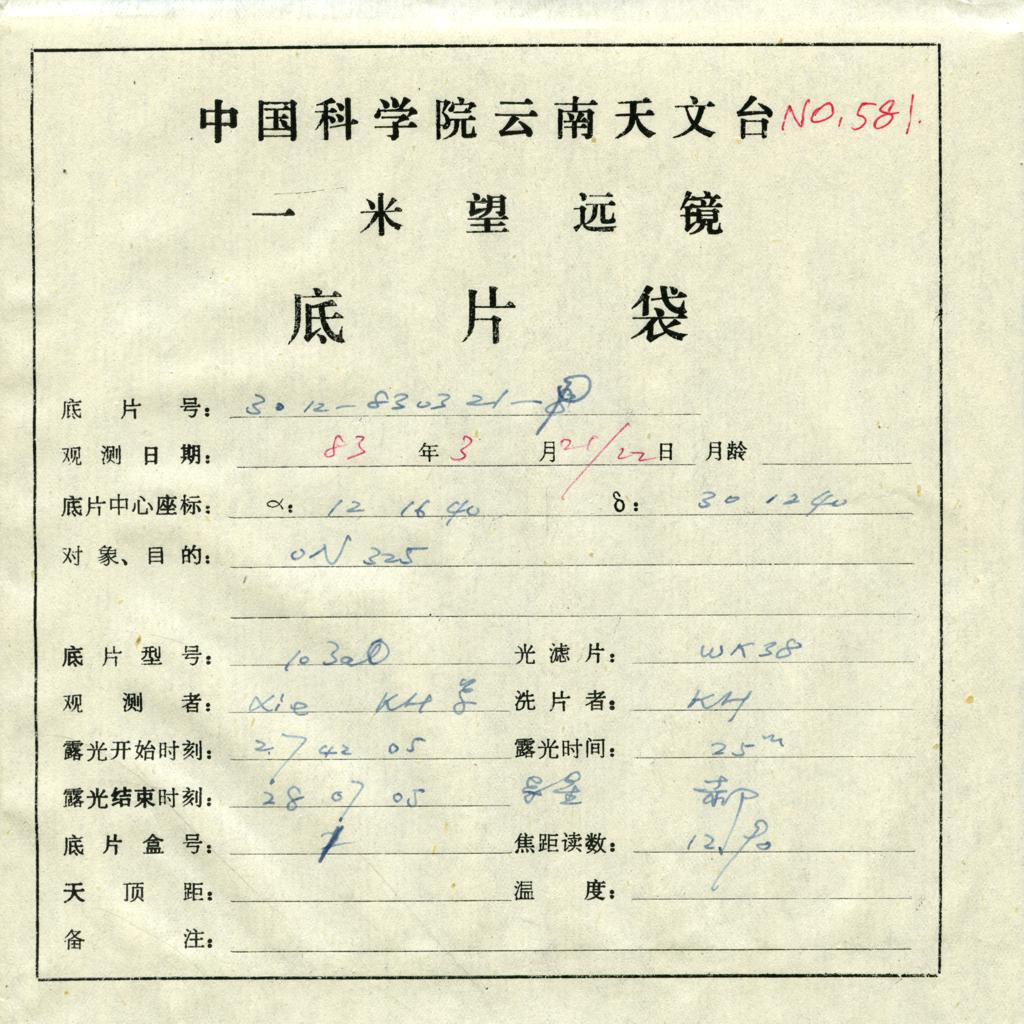 中国科学院云南天文台 NO.581.
一米望远镜
底片袋
底片号: 3012-830321-
观测日期: 83年3月21/22日 月龄
底片中心座标: α: 12 16 40 δ: 30 12 40
对象、目的: ON 325
底片型号: 103aO 光滤片: WK38
观测者: Xie KH 洗片者: KH
露光开始时刻: 27 42 05 露光时间: 25m
露光结束时刻: 28 07 05 导星 郝
底片盒号: 1 焦距读数: 12.90
天顶距: 温度:
备注: